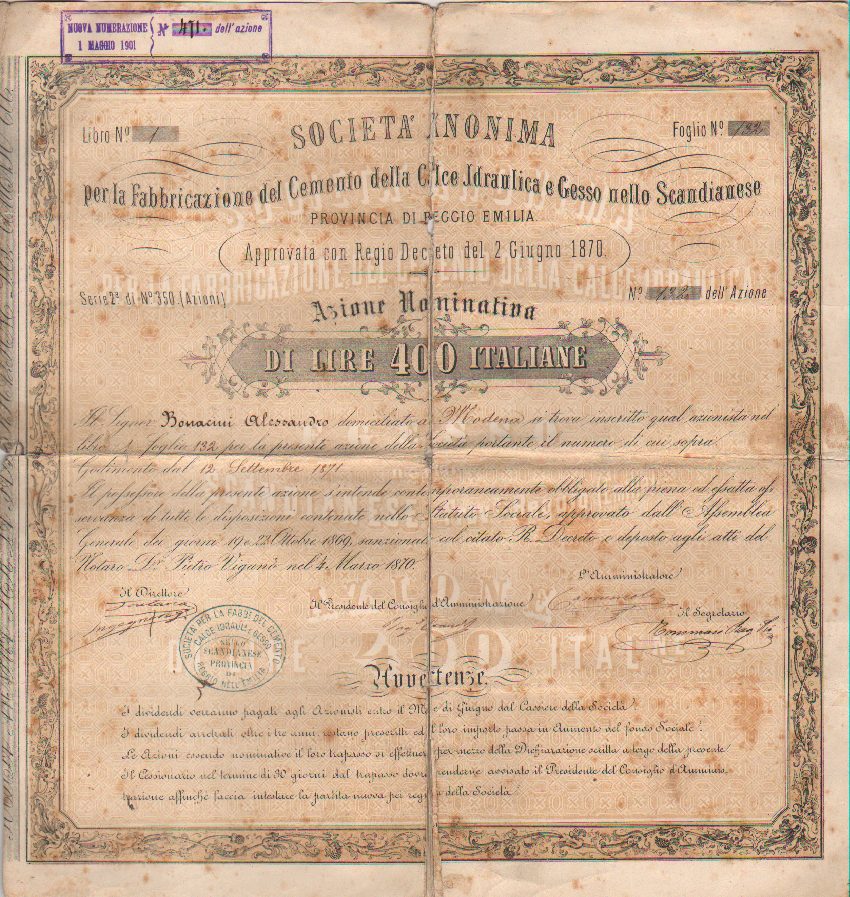 NUOVA NUMERAZIONE
1 MAGGIO 1901
Nº 471. dell'azione
Libro Nº 1
Foglio Nº 132
SOCIETA' ANONIMA
per la Fabbricazione del Cemento della Calce Idraulica e Gesso nello Scandianese
PROVINCIA DI REGGIO EMILIA
Approvata con Regio Decreto del 2 Giugno 1870.
Serie 2ª di Nº 350 (Azioni)
Nº 132 dell'Azione
Azione Nominativa
DI LIRE 400 ITALIANE
Il Signor Bonacini Alessandro domiciliato a Modena si trova inscritto qual azionista nel
libro 1 foglio 132 per la presente azione della Società portante il numero di cui sopra.
Godimento dal 12 Settembre 1871
Il possessore della presente azione s'intende contemporaneamente obbligato alla piena ed esatta os
servanza di tutte le disposizioni contenute nello Statuto Sociale approvato dall'Assemblea
Generale dei giorni 19 e 23 Ottobre 1869, sanzionato col citato R. Decreto e deposto agli atti del
Notaro Dr. Pietro Viganò nel 4 Marzo 1870.
Il Direttore
Il Presidente del Consiglio d'Amministrazione
L'Amministratore
Il Segretario
Tommaso
SOCIETA PER LA FABB. DEL CEMENTO
CALCE IDRAUL. E GESSO
NELLO
SCANDIANESE
PROVINCIA
DI
REGGIO NELL'EMILIA
Avvertenze
I dividendi verranno pagati agli Azionisti entro il Mese di Giugno dal Cassiere della Società.
I dividendi arretrati oltre i tre anni, restano prescritti ed il loro importo passa in Aumento del fondo Sociale.
Le Azioni essendo nominative il loro trapasso si effettuerà per mezzo della Dichiarazione scritta a tergo della presente
Il Cessionario nel termine di 30 giorni dal trapasso dovrà renderne avvisato il Presidente del Consiglio d'Ammini
strazione affinchè faccia intestare la partita nuova per regola della Società